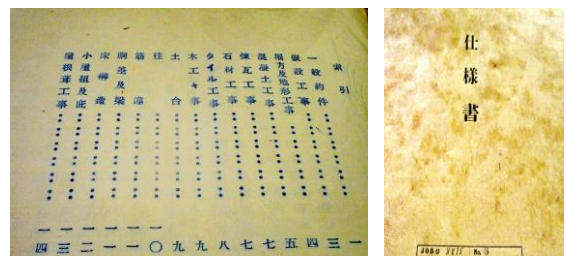 索引
一般約件・・・・・・・・一
假設工事・・・・・・・・三
方及地形工事・・・・・・・・四
混凝土工事・・・・・・・・五
煉瓦工事・・・・・・・・七
石材工事・・・・・・・・七
タイル工事・・・・・・・・八
木工々事・・・・・・・・九
土台・・・・・・・・九
柱・・・・・・・・一〇
筋違・・・・・・・・一一
胴差及梁・・・・・・・・一一
床構造・・・・・・・・一二
小屋組及庇・・・・・・・・一三
屋根葺工事・・・・・・・・一四
仕様書